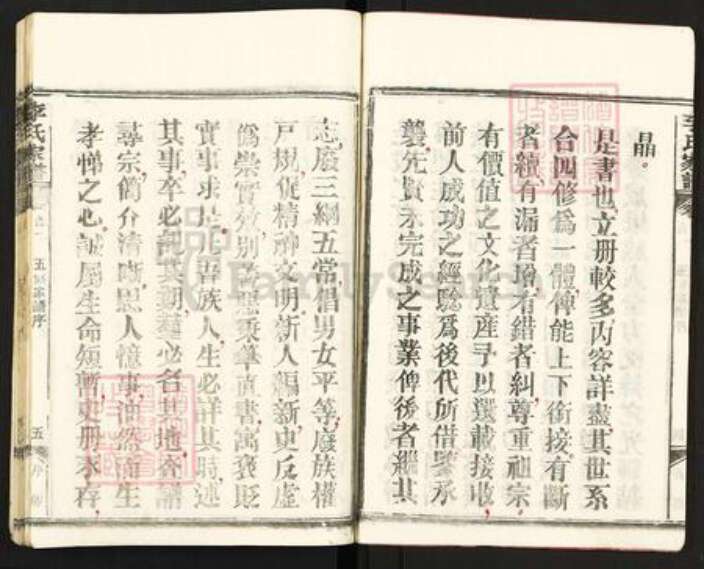 晶。
是書也，立册較多，內容詳盡，其世系
合四修爲一體，俾能上下銜接，有斷
者續，有漏者增，有錯者糾，尊重祖宗，
有價值之文化遺產予以選載接收，
前人成功之經驗爲後代所借鑒，承
襲先賢未完成之事業，俾後者繼其
志，廢三綱五常，倡男女平等，廢族權
戶規，促精神文明，新人編新史，反虛
僞，崇實效，別善惡，秉筆直書，寓褒貶
實事求是，吾族人生必詳其時，述
其事，卒必記其期，葬必名其地，
尋宗，簡介清晰，思人憶事，油然而生
孝悌之心，誠屬生命短暫，史册永存，
李氏宗譜
五修宗譜序
五
FamilySearch